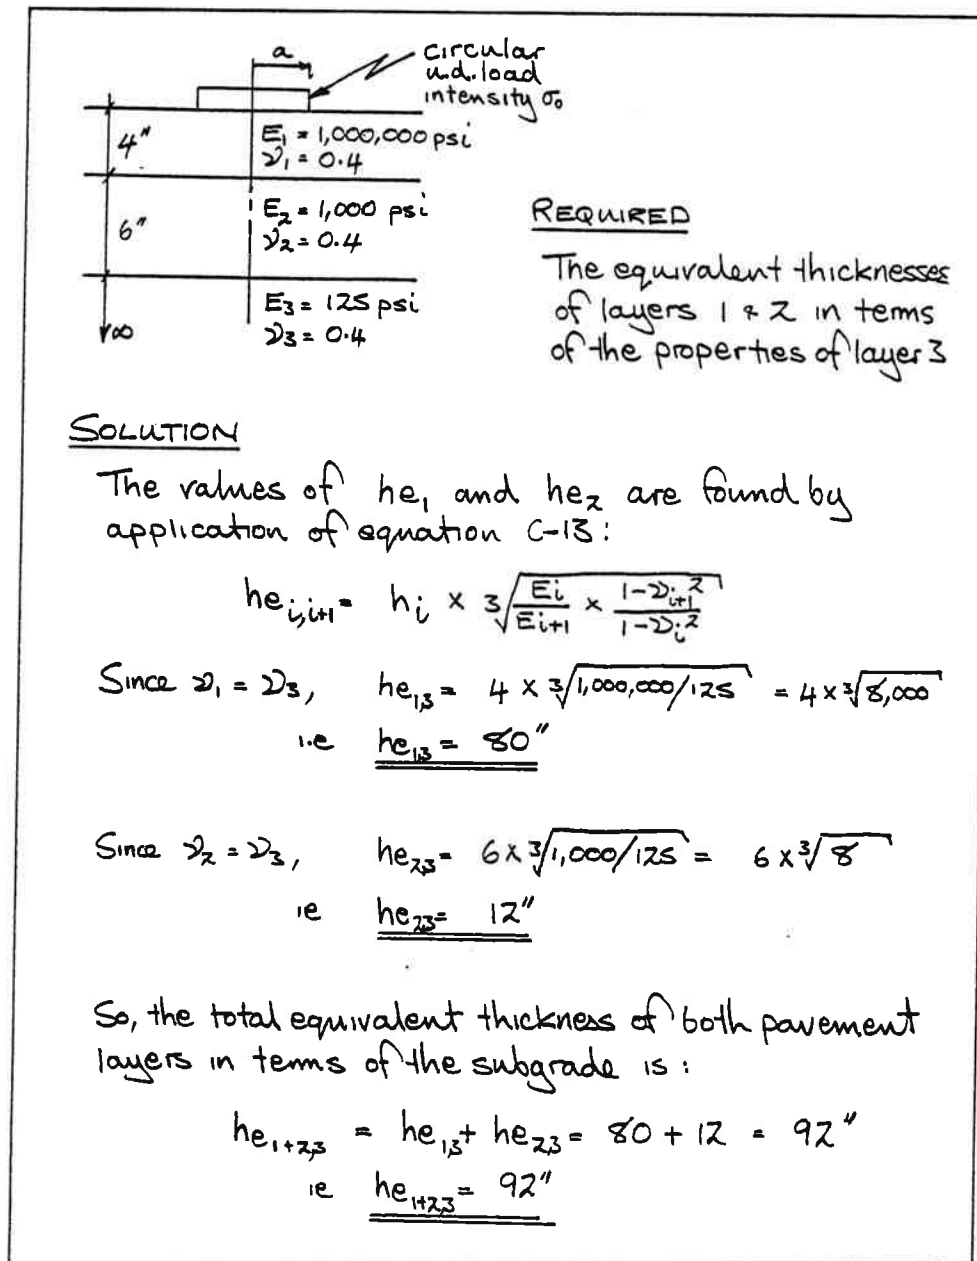 a
circular
u.d. load
intensity σ₀
4"
E₁ = 1,000,000 psi
ν₁ = 0.4
6"
E₂ = 1,000 psi
ν₂ = 0.4
∞
E₃ = 125 psi
ν₃ = 0.4
REQUIRED
The equivalent thicknesses
of layers 1 & 2 in terms
of the properties of layer 3
SOLUTION
The values of he₁ and he₂ are found by
application of equation C-13:
he_{i,i+1} = h_i × ∛(E_i/E_{i+1} × (1-ν_{i+1}²)/(1-ν_i²))
Since ν₁ = ν₃, he_{1,3} = 4 × ∛(1,000,000/125) = 4 × ∛8,000
i.e he_{1,3} = 80"
Since ν₂ = ν₃, he_{2,3} = 6 × ∛(1,000/125) = 6 × ∛8
ie he_{2,3} = 12"
So, the total equivalent thickness of both pavement
layers in terms of the subgrade is:
he_{1+2,3} = he_{1,3} + he_{2,3} = 80 + 12 = 92"
ie he_{1+2,3} = 92"